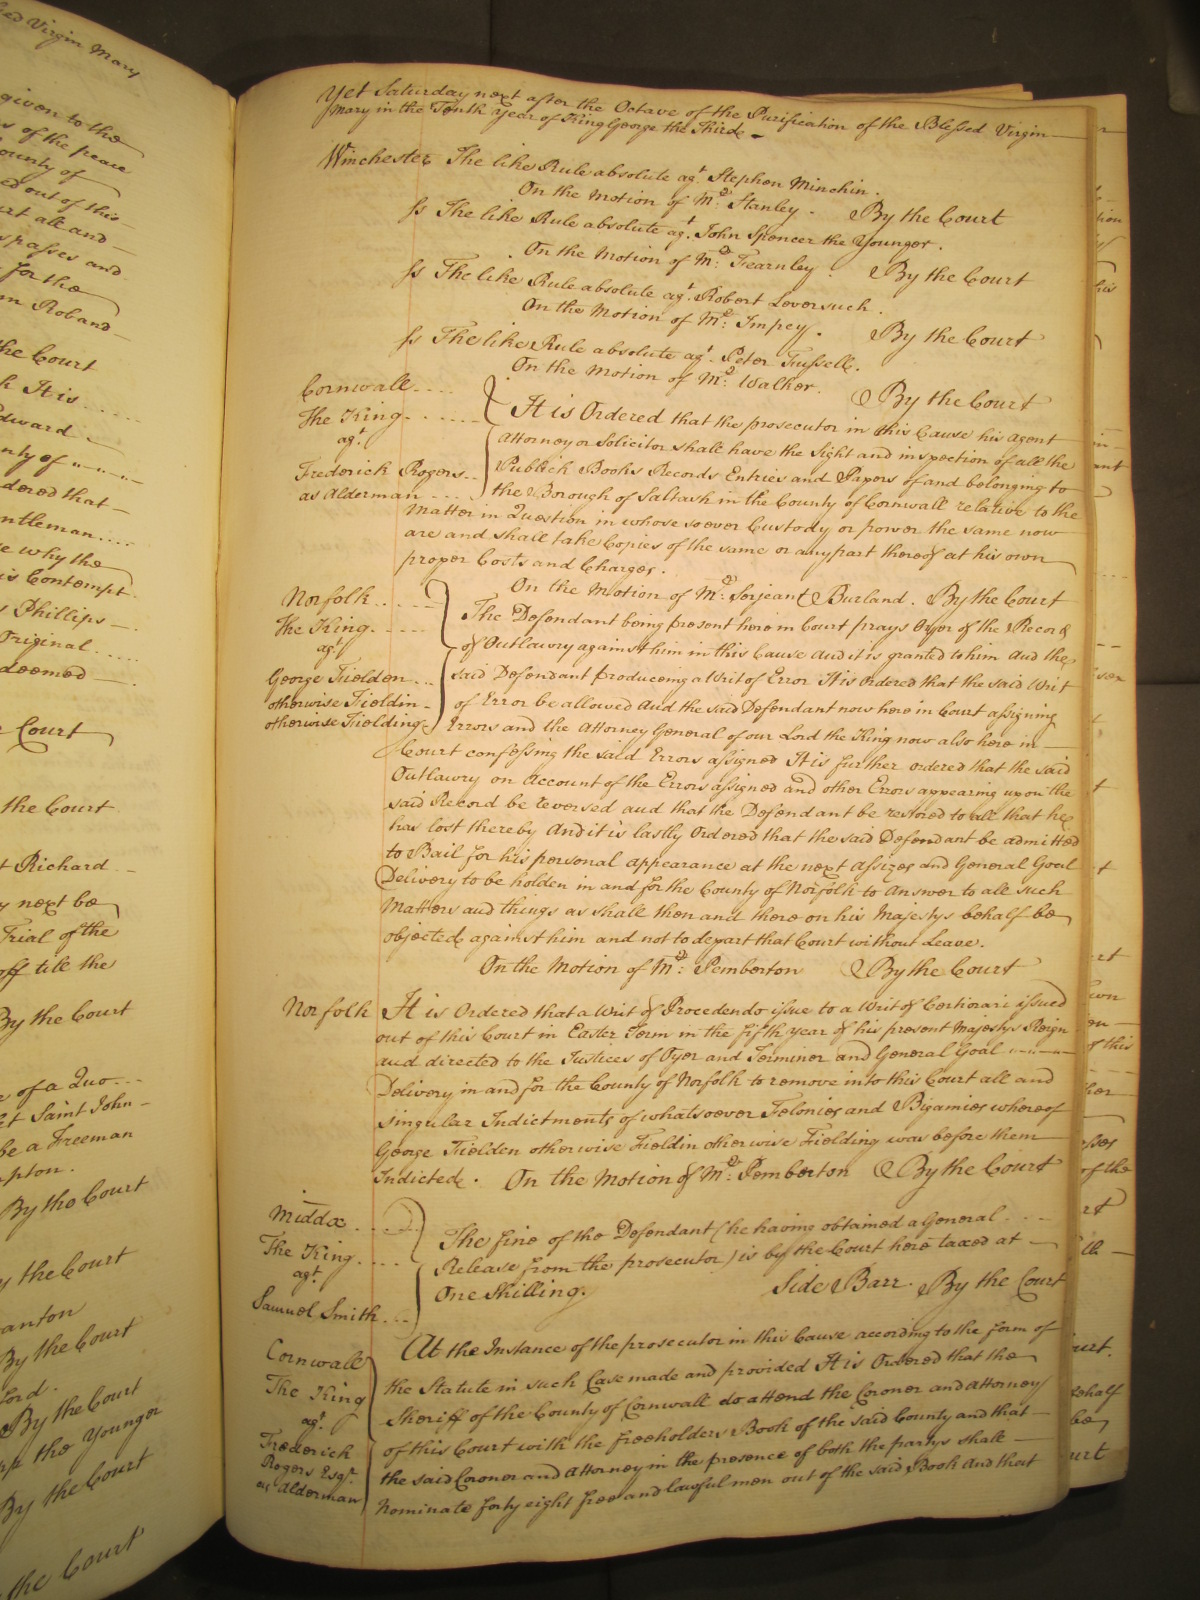 ed Virgin Mary
given to the
s of the peace
ounty of
ed out of this
urt all and
spasses and
for the
m Roband
he Court
It is
dward
nty of
dered that
ntleman
e why the
is Contempt
Phillips
Original
deemed
Court
the Court
t Richard
y next be
Trial of the
off till the
By the Court
of a Quo
et Saint John
be a Freeman
pton.
By the Court
y the Court
anton
By the Court
ford.
By the Court
the Younger
By the Court
the Court
Yet Saturday next after the Octave of the Purification of the Blessed Virgin
Mary in the Tenth Year of King George the Third
Winchester The like Rule absolute agt. Stephen Minchin.
On the Motion of Mr. Stanley. By the Court
ss The like Rule absolute agt. John Spencer the Younger.
On the Motion of Mr. Fearnley. By the Court
ss The like Rule absolute agt. Robert Leversuch.
On the Motion of Mr. Impey. By the Court
ss The like Rule absolute agt. Peter Tussell.
On the Motion of Mr. Walker. By the Court
Cornwall
The King
agt.
Frederick Rogers
as Alderman
It is Ordered that the prosecutor in this Cause his Agent
Attorney or Solicitor shall have the Sight and inspection of all the
Publick Books Records Entries and Papers of and belonging to
the Borough of Saltash in the County of Cornwall relative to the
Matter in Question in whose soever Custody or power the same now
are and shall take Copies of the same or any part thereof at his own
proper Costs and Charges.
On the Motion of Mr. Serjeant Burland. By the Court
Norfolk
The King
agt.
George Fielden
otherwise Fieldin
otherwise Fielding
The Defendant being present here in Court prays Oyer of the Record
of Outlawry against him in this Cause And it is granted to him And the
said Defendant produceing a Writ of Error It is Ordered that the said Writ
of Error be allowed And the said Defendant now here in Court assigning
Errors and the Attorney General of our Lord the King now also here in
Court confessing the said Errors assigned It is further ordered that the said
Outlawry on Account of the Errors assigned and other Errors appearing upon the
said Record be reversed and that the Defendant be restored to all that he
has lost thereby And it is lastly Ordered that the said Defendant be admitted
to Bail for his personal appearance at the next Assizes and General Goal
Delivery to be holden in and for the County of Norfolk to answer to all such
Matters and things as shall then and there on his Majestys behalf be
objected against him and not to depart that Court without Leave.
On the Motion of Mr. Pemberton By the Court
Norfolk It is Ordered that a Writ of Procedendo issue to a Writ of Certiorari issued
out of this Court in Easter Term in the fifth year of his present Majestys Reign
and directed to the Justices of Oyer and Terminer and General Goal
Delivery in and for the County of Norfolk to remove into this Court all and
singular Indictments of whatsoever Felonies and Bigamies whereof
George Fielden otherwise Fieldin otherwise Fielding was before them
Indicted. On the Motion of Mr. Pemberton By the Court
Middx
The King
agt.
Samuel Smith
The fine of the Defendant (he having obtained a General
Release from the prosecutor) is by the Court here taxed at
One Shilling. Side Barr. By the Court
Cornwall
The King
agt.
Frederick
Rogers Esqr.
as Alderman
At the Instance of the prosecutor in this Cause according to the form of
the Statute in such Case made and provided It is Ordered that the
Sheriff of the County of Cornwall do attend the Coroner and Attorney
of this Court with the freeholders Book of the said County and that
the said Coroner and Attorney in the presence of both the partys shall
Nominate forty eight free and lawful men out of the said Book And that